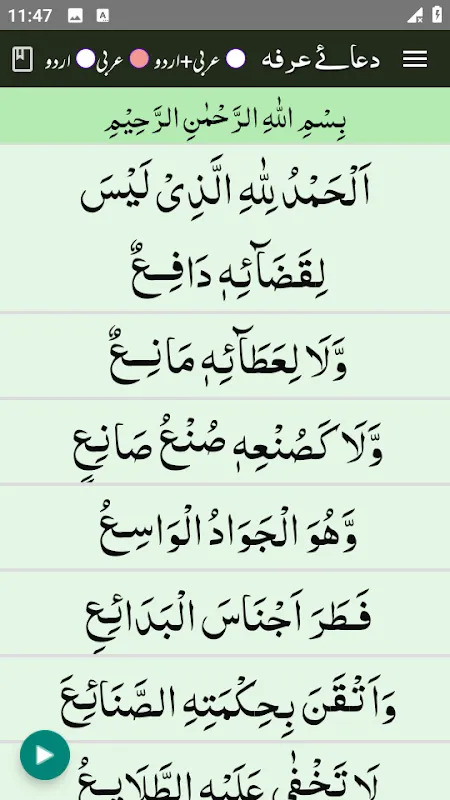 11:47
دعائے عرفہ عربی+اردو عربی اردو
بِسْمِ اللهِ الرَّحْمٰنِ الرَّحِيْمِ
اَلْحَمْدُ لِلّٰهِ الَّذِىْ لَيْسَ
لِقَضَآئِهٖ دَافِعٌ
وَّلَا لِعَطَآئِهٖ مَانِعٌ
وَّلَا كَصُنْعِهٖ صُنْعُ صَانِعٍ
وَّهُوَ الْجَوَادُ الْوَاسِعُ
فَطَرَ اَجْنَاسَ الْبَدَائِعِ
وَاَتْقَنَ بِحِكْمَتِهِ الصَّنَائِعَ
لَا تَخْفٰى عَلَيْهِ الطَّلَايِعُ